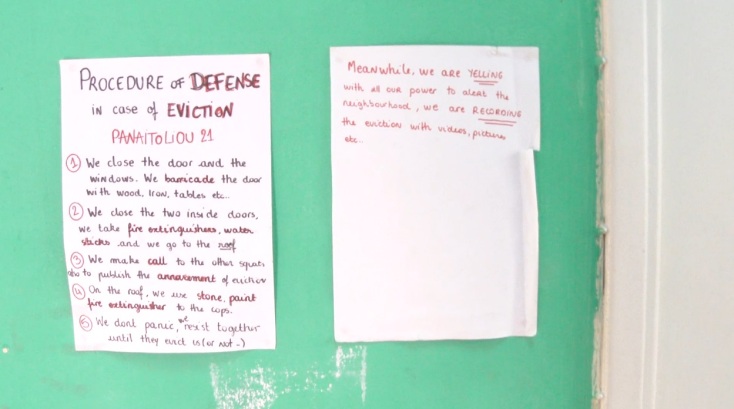 PROCEDURE OF DEFENSE
in case of EVICTION
PANAITOLIOU 21
① We close the door and the
windows. We barricade the door
with wood, Iron, tables etc..
② We close the two inside doors,
we take fire extinguishers, water
sticks and we go to the roof
③ We make call to the other squats
also to publish the annavement of eviction
④ On the roof, we use stone, paint
fire extinguisher to the cops.
⑤ We dont panic, we resist together
until they evict us (or not..)
Meanwhile, we are YELLING
with all our power to alert the
neighbourhood, we are RECORDING
the eviction with videos, pictures
etc..